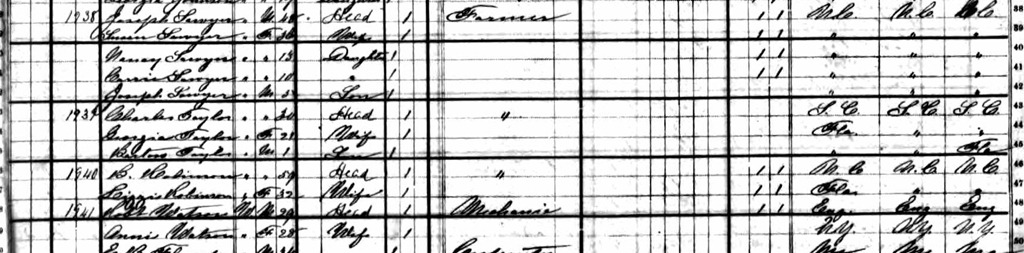 1938 Joseph Sawyer " M 48 Head 1 Farmer 1 1 N.C. N.C. N.C. 38
Susan Sawyer " F 36 Wife 1 1 1 " " " 39
Nancy Sawyer " " 13 Daughter 1 1 1 " " " 40
Carrie Sawyer " " 10 " 1 1 1 " " " 41
Joseph Sawyer " M 5 Son 1 " " " 42
1939 Charles Taylor " " 30 Head 1 " S.C. S.C. S.C. 43
Georgia Taylor " F 28 Wife 1 Fla. " "
Taylor " M 1 Son 1 " " Fla
1940 B. Robinson " " 59 Head 1 " 1 1 N.C. N.C. N.C. 46
Lizzie Robinson " F 32 Wife 1 1 1 Fla " " 47
1941 Robt Watson W M 29 Head 1 Mechanic 1 1 Eng Eng Eng 48
Annie Watson " F 28 Wife 1 N.Y. N.Y. N.Y.